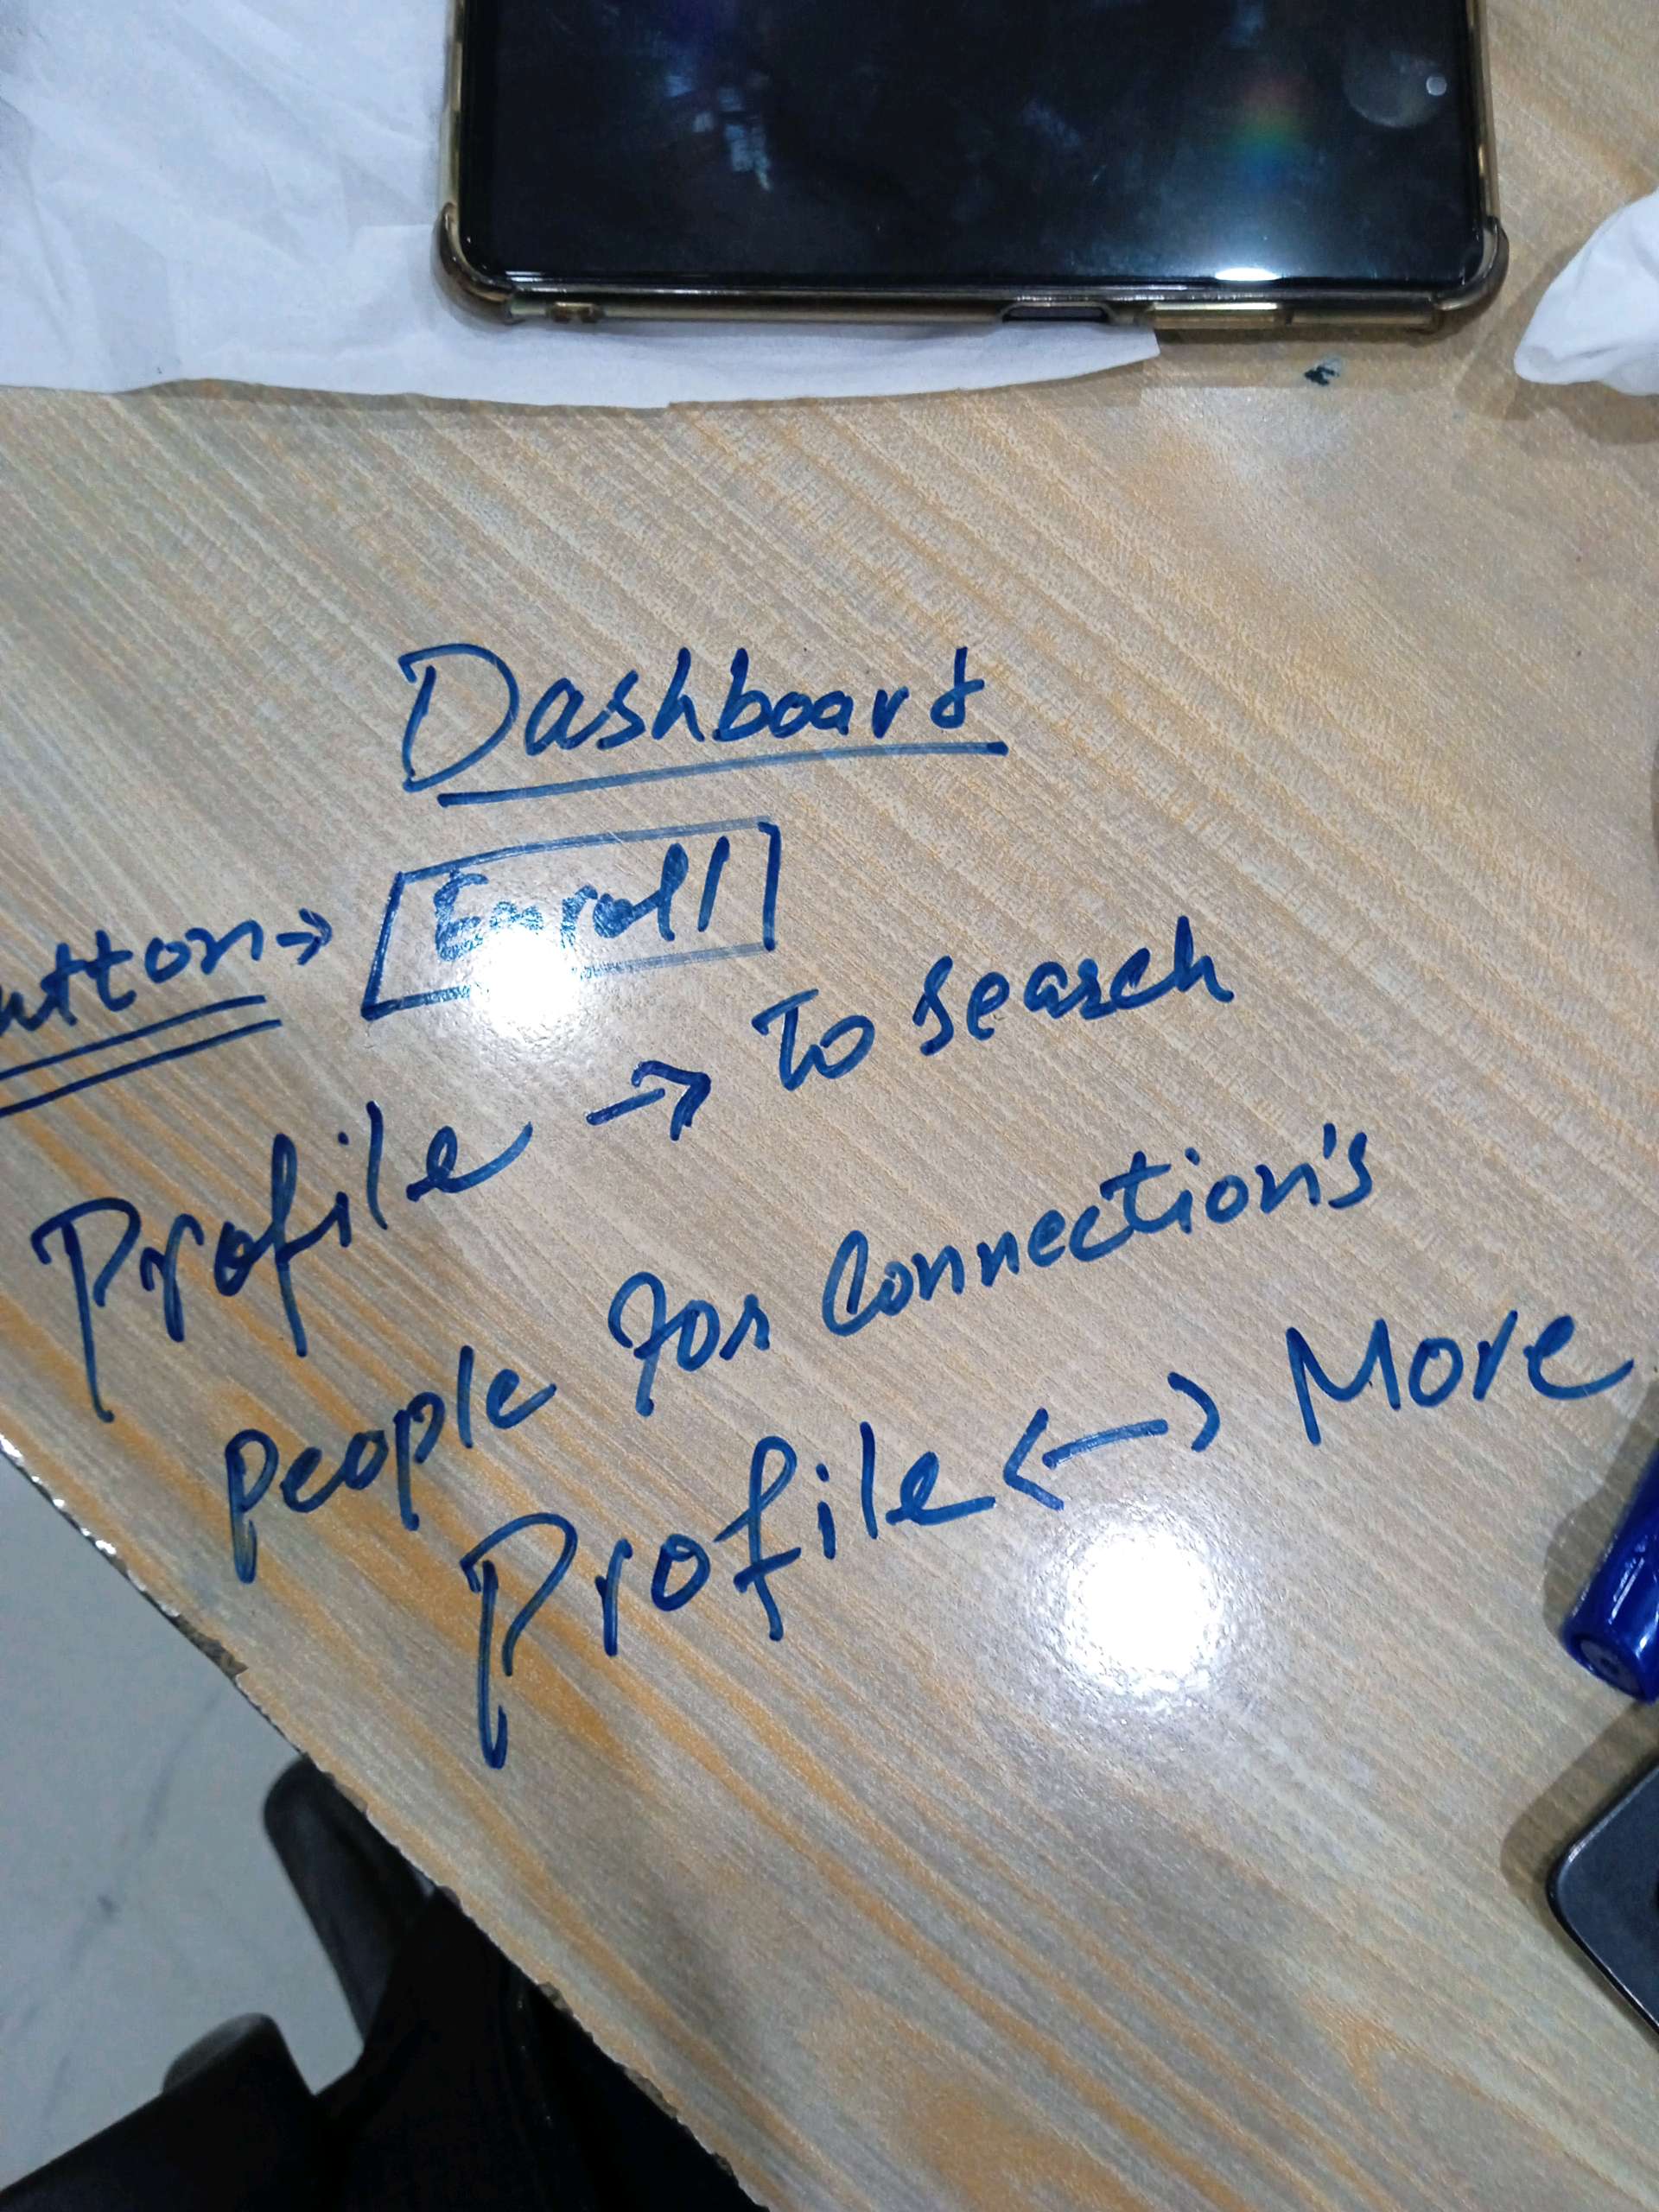 Dashboard
utton → Enroll
Profile → To search
people for Connection's
Profile <-> More